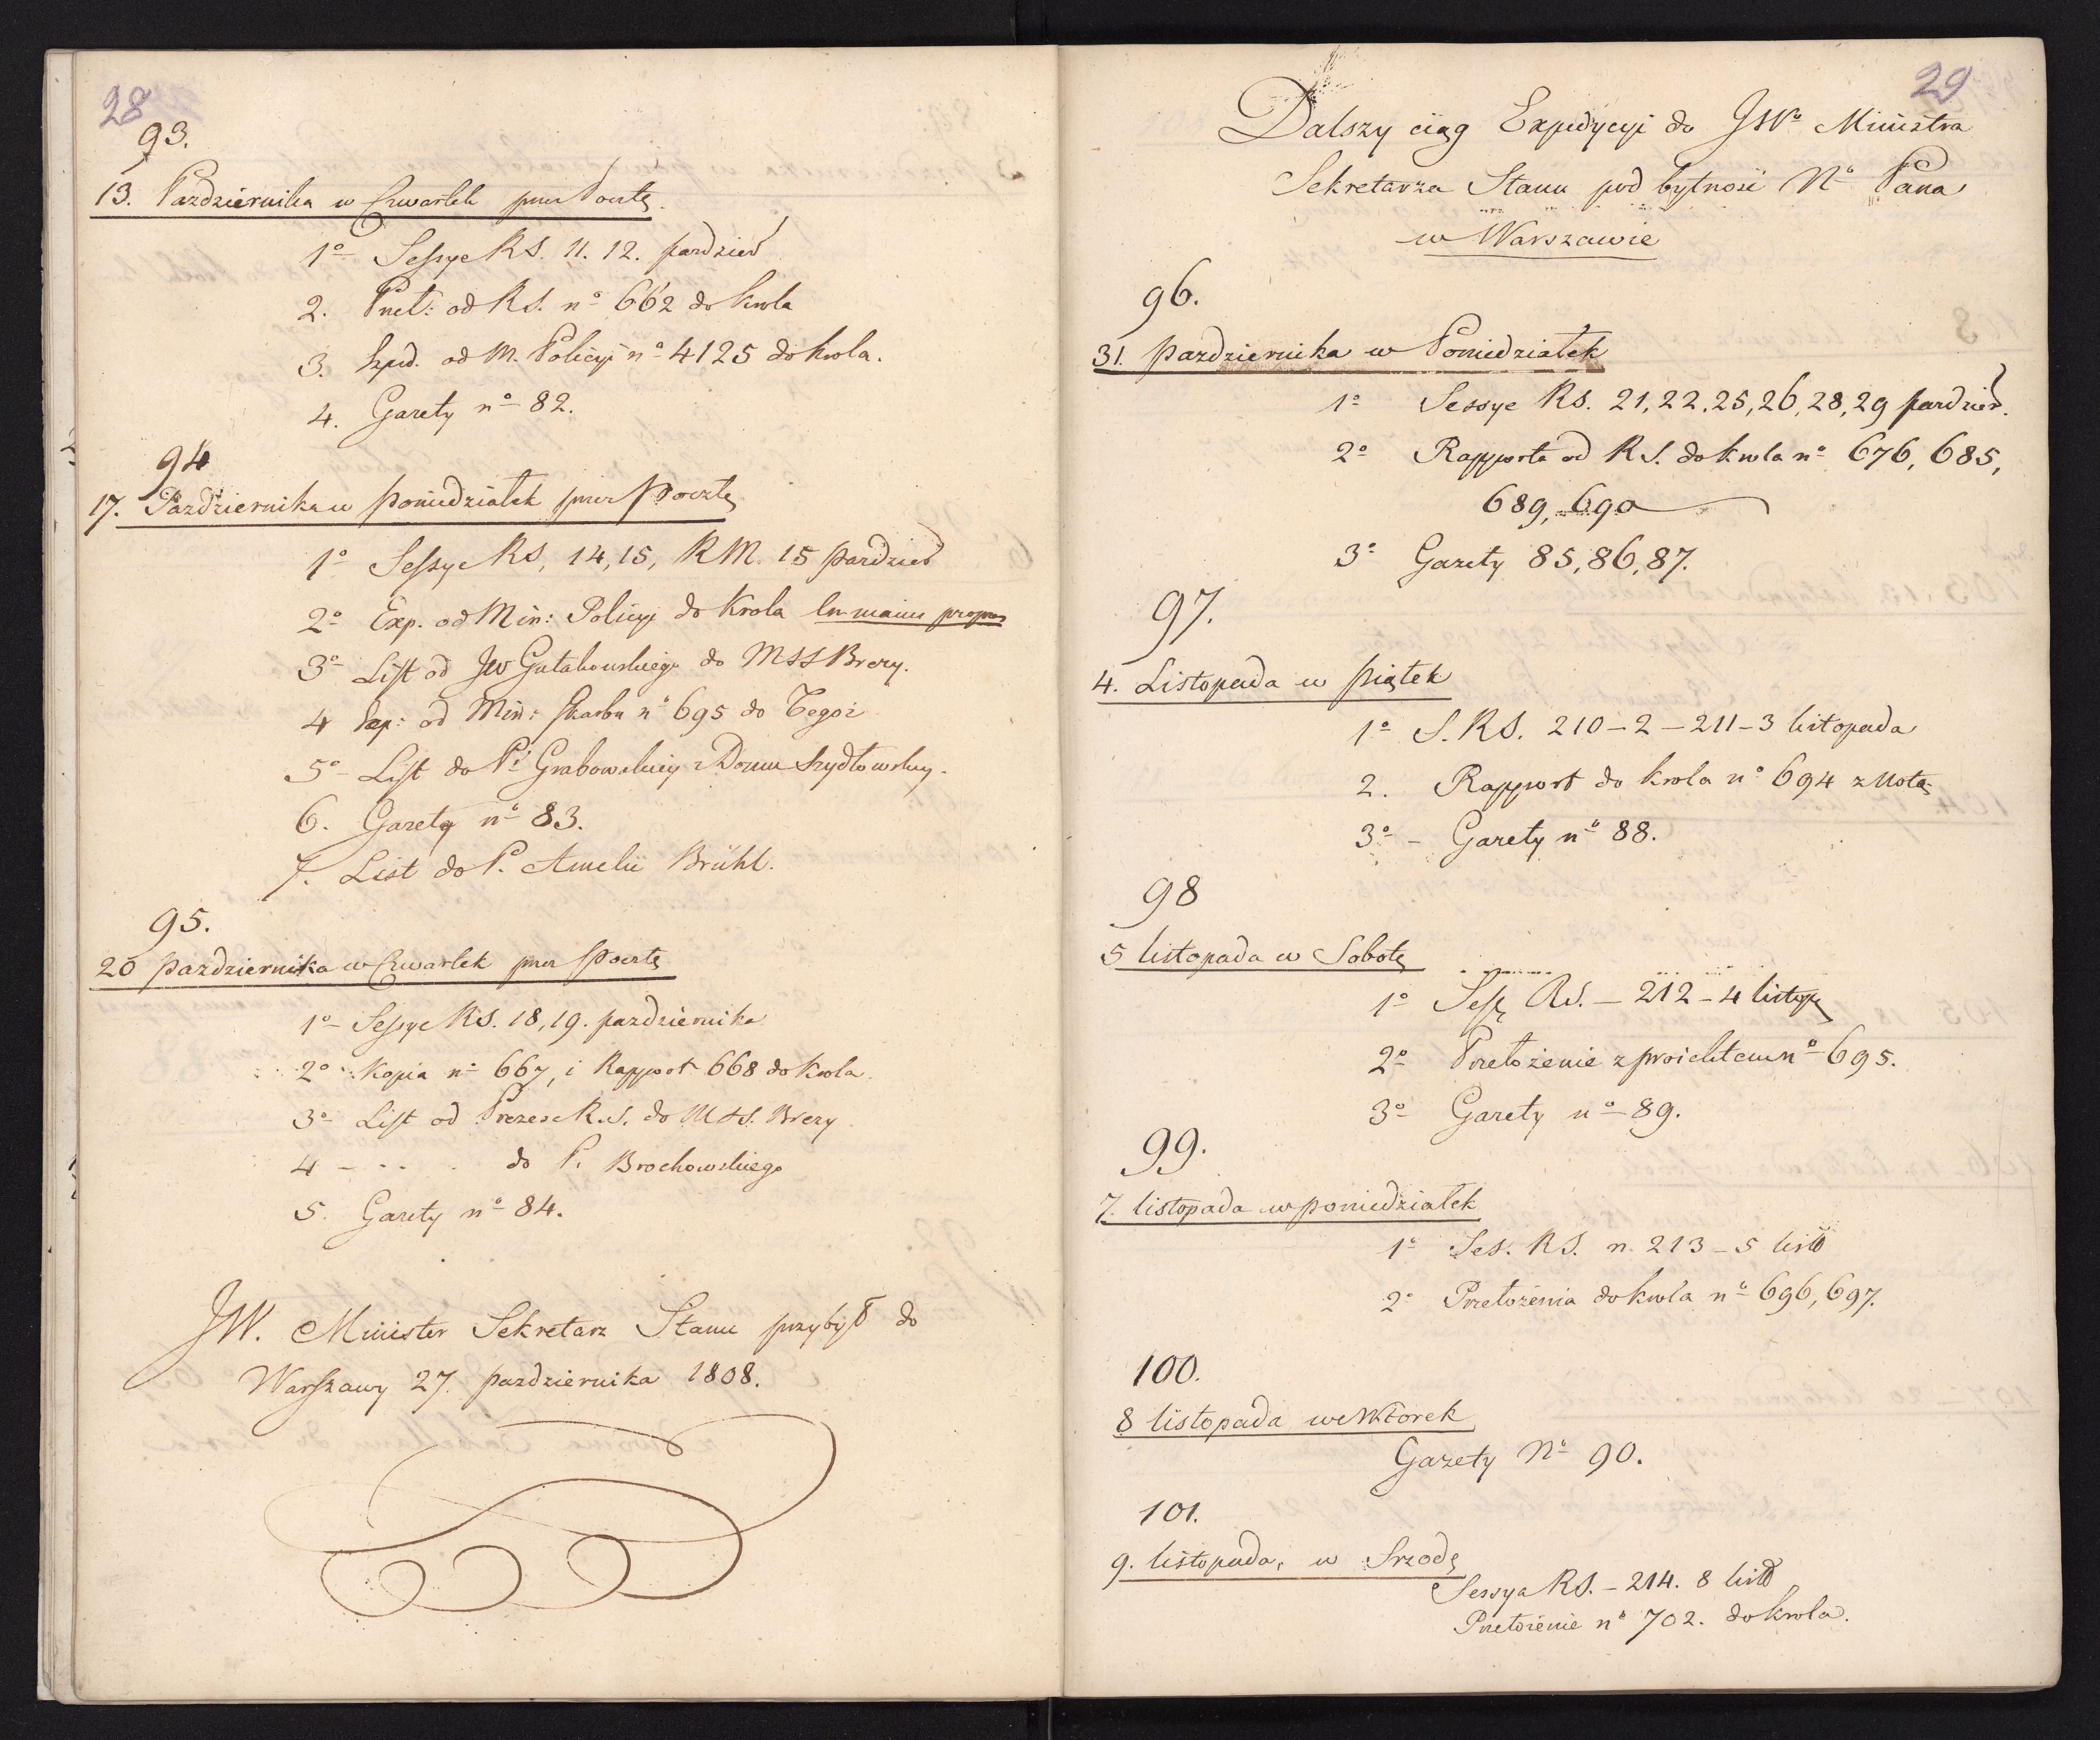 28
93.
13. Pazdziernika w Czwartek przez Pocztę.
1º Sessye RS. 11. 12. pazdzier
2. Przeł: od RS. nº 662 do krola
3. Exped. od M. Policyi nº 4125 do krola.
4. Gazety nº 82.
94
17. Pazdziernika w poniedziałek przez pocztę
1º Sessye RS, 14, 15, RM. 15 pazdzier
2º Exp. od Min: Policyi do Krola
3º List od JW Gutakowskiego do MSS Brezy.
4 Exp: od Min: Skarbu nº 695 do Tegoż
5º List do Pi Grabowskiey z Domu Szydłowskiey.
6. Gazety nº 83.
7. List do P. Amelii Brühl.
95.
20 pazdziernika w Czwartek przez pocztę
1º Sessye RS. 18, 19. pazdziernika
2º Kopia nº 667, i Rapport 668 do krola.
3º List od Prezesa R.S. do MSS. Brezy
4 - - - . do P. Brochowskiego
5. Gazety nº 84.
JW. Minister Sekretarz Stanu przybył do
Warszawy 27. pazdziernika 1808.
29
Dalszy ciąg Expedycyi do JWº Ministra
Sekretarza Stanu pod bytność Nº Pana
w Warszawie
96.
31. pazdziernika w Poniedziałek
1º Sessye RS. 21, 22, 25, 26, 28, 29 pazdzier.
2º Rapporta od R S. do krola nº 676, 685,
689, 690
3º Gazety 85, 86, 87.
97.
4. Listopada w piątek
1º S. RS. 210 - 2 - 211 - 3 listopada
2. Rapport do krola nº 694 z Notą
3º - Gazety nº 88.
98
5 listopada w Sobotę
1º Sess RS. - 212 - 4 listop
2º Przełożenie z proiektem nº 695.
3º Gazety nº 89.
99.
7. listopada w poniedziałek
1º Ses. RS. n. 213 - 5 list
2º Przełożenia do krola nº 696, 697.
100.
8 listopada we Wtorek
Gazety Nº 90.
101.
9. listopada, w Srzodę
Sessya RS. - 214. 8 list
Przełożenie nº 702. do krola.